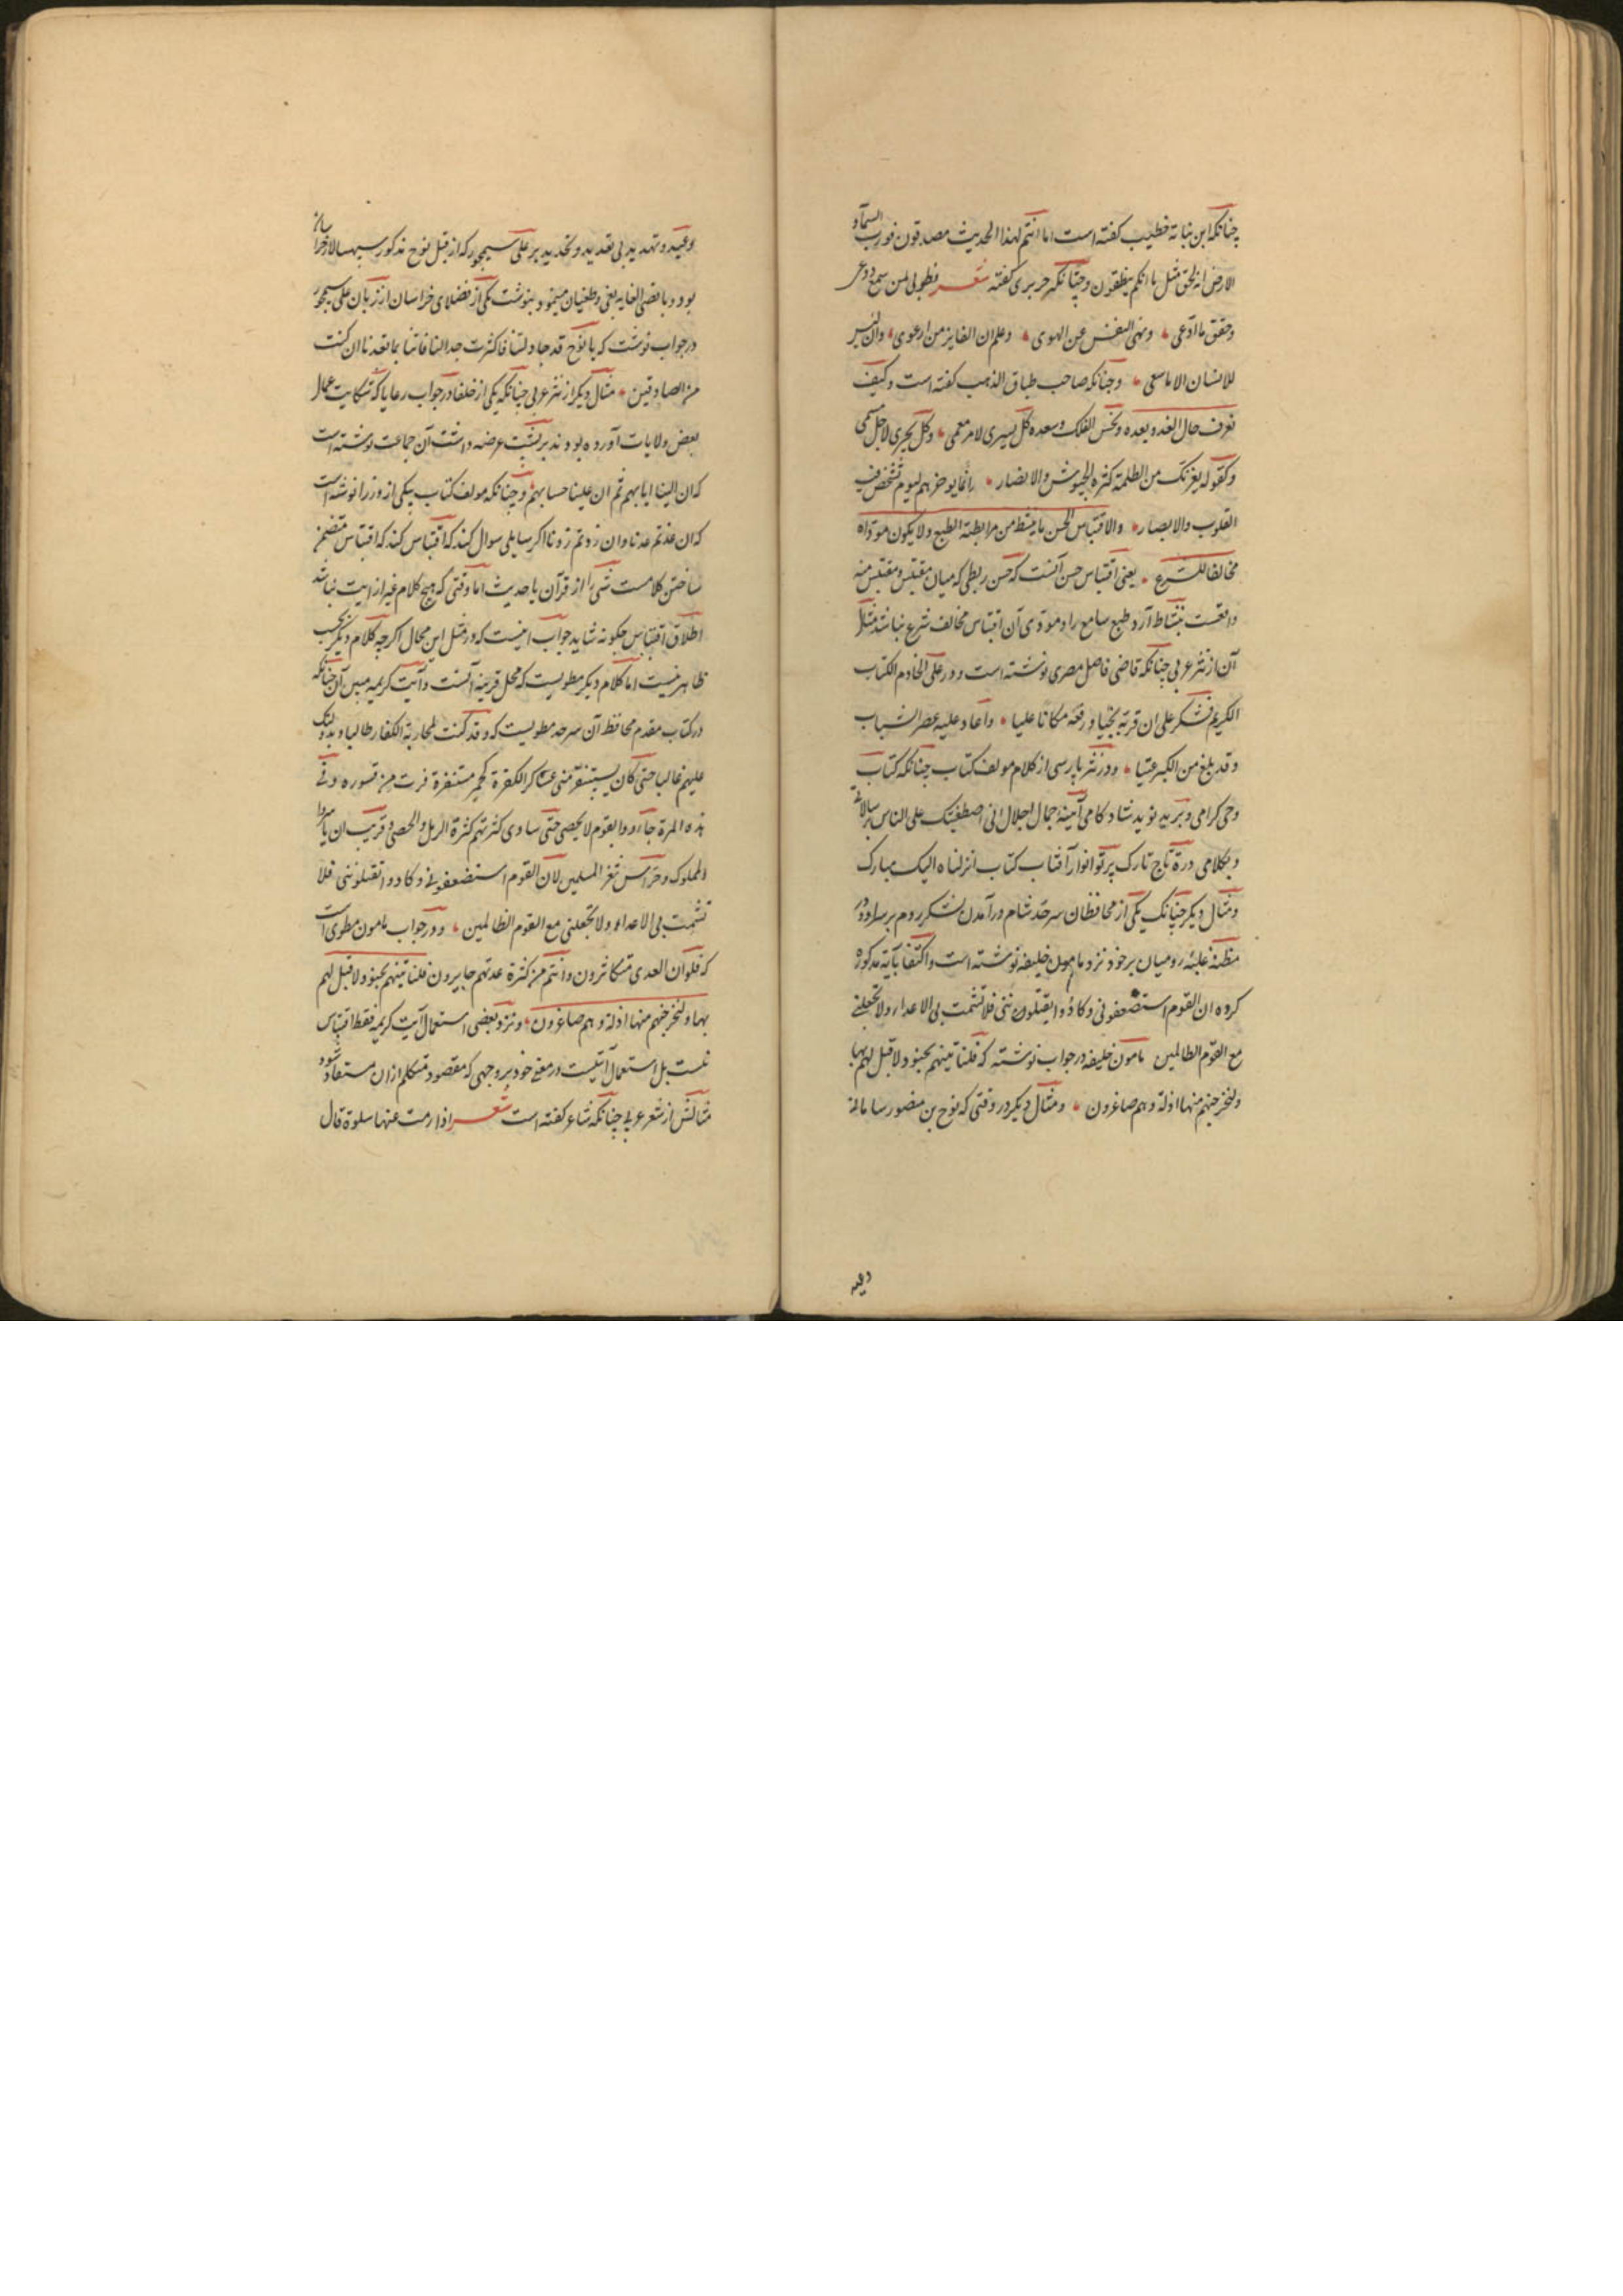 چنانکه ابن نباته خطیب کفته است اما انتم لهذا الحدیث مصدقون فورب السمآء و
الارض انه لحق مثل ما انکم ینطقون و چنانکه حریری کفته شعر فطوبی لمن سمع و وعی
و حقق ما ادّعی و نهی النفس عن الهوی و علم ان الفایز من ارعوی و ان لیس
للانسان الا ما سعی و چنانکه صاحب طباق الذهب کفته است و کیف
تعرف حال الغد و بعده و نحس الفلک و سعده کل یسیری لامر معمی و کل یجری لاجل مسمی
و کقوله لا یغرنک من الظلمة کثرة الجیوش و الانصار انما یوخرهم لیوم تشخص فیه
القلوب و الابصار و الاقتباس الحسن ما ینشط من مرابطته الطبع و لا یکون مودّاه
مخالفا للشرع یعنی اقتباس حسن آنست که حسن ربطی که میان مقتبس و مقتبس منه
واقعست بنشاط آرد طبع سامع را و مودّی آن اقتباس مخالف شرع نباشد مثال
آن از نثر عربی چنانکه قاضی فاضل مصری نوشته است و ورد علی الخادم الکتاب
الکریم فشکر علی ان قربه نجیا و رفعه مکانا علیا و اعاد علیه عصر الشباب
و قد بلغ من الکبر عتیا و در نثر پارسی از کلام مولف کتاب چنانکه کتاب
وحی کرامی و برید نوید شادکامی آینهٔ جمال اجلال انی اصطفیتک علی الناس برسالاتی
و بکلامی درة تاج تارک پرتو انوار آفتاب کتاب انزلناه الیک مبارک
و مثال دیکر چنانک یکی از محافظان سرحد شام در آمدن لشکر روم بر سر او و در
مظنهٔ غلبهٔ رومیان بر خود نزد مامون خلیفه نوشته است و اکتفا بآیة مذکوره
کرده ان القوم استضعفونی و کادوا یقتلوننی فلا تشمت بی الاعدا و لا تجعلنی
مع القوم الظالمین مامون خلیفه در جواب نوشته که فلناتینهم بجنود لا قبل لهم بها
و لنخرجنهم منها اذلة و هم صاغرون و مثال دیکر در وقتی که نوح بن منصور سامانی
وعید
وعید و تهدید بی تعدید و تحدید بر علی سیمجور که از قبل نوح مذکور سپهسالار خراسان
بود و باقصی الغایه بغی و طغیان مینمود بنوشت یکی از فضلای خراسان از زبان علی سیمجور
در جواب نوشت که یا نوح قد جادلتنا فاکثرت جدالنا فاتنا بما تعدنا ان کنت
من الصادقین مثال دیکر از نثر عربی چنانکه یکی از خلفا در جواب رعایا که شکایت عمال
بعض ولایات آورده بودند بر پشت عرضه داشت آن جماعت نوشته است
که ان الینا ایابهم ثم ان علینا حسابهم و چنانکه مولف کتاب بیکی از وزرا نوشته است
که ان عدتم عدنا و ان زدتم زدنا اکر سایلی سوال کند که اقتباس کند که اقتباس متضمن
ساختن کلامست شی را از قرآن یا حدیث اما وقتی که هیچ کلام غیر از ایت نباشد
اطلاق اقتباس چکونه شاید جواب اینست که در مثل این محال اکرچه کلام دیکر بحسب
ظاهر نیست اما کلام دیکر مطویست که محل قرینه آنست و آیت کریمه مبین آن چنانکه
در کتاب مقدم محافظ آن سرحد مطویست که و قد کنت لمحاربة الکفار طالبا و بدولتک
علیهم غالبا حتی کان یستنفر منی عساکر الکفرة کحمر مستنفرة فرت من قسوره و فی
هذه المرة جاؤوا بقوم لا یحصی حتی ساوی کثرتهم کثرة الرمل و الحصی و قریب ان یاسروا
المملوک و حراس ثغر المسلمین لان القوم استضعفونی و کادوا تقتلوننی فلا
تشمت بی الاعداء و لا تجعلنی مع القوم الظالمین و در جواب مامون مطوی است
که فلو ان العدی متکاثرون و انتم من کثرة عدتهم حایرون فلناتینهم بجنود لا قبل لهم
بها و لنخرجنهم منها اذلة و هم صاغرون و نزد بعضی استعمال آیت کریمه فقط اقتباس
نیست بل استعمال آیتیست در معنی خود بر وجهی که مقصود متکلم ازان مستفاد شود
مثالش از شعر عربی چنانکه شاعر کفته است شعر اذا رمت عنها سلوة قال